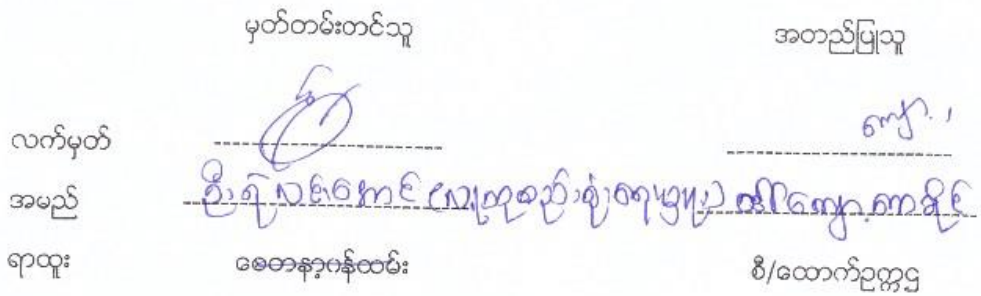 မှတ်တမ်းတင်သူ အတည်ပြုသူ
လက်မှတ် ကျော်
အမည် ဦးရဲလင်းအောင် (လူထုစည်းရုံးရေးမှူး) ဒေါ်ကျော့
ရာထူး စေတနာ့ဝန်ထမ်း စီ/ထောက်ဥက္ကဌ